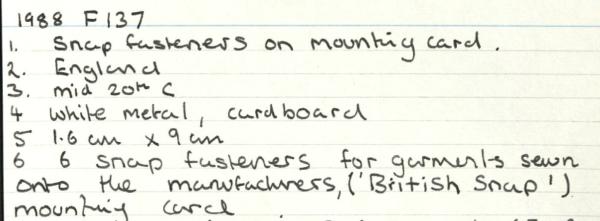 1988 F137
1. Snap fasteners on mounting card.
2. England
3. mid 20th C
4 white metal, cardboard
5 1.6 cm x 9 cm
6 6 snap fasteners for garments sewn
onto the manufacturers, ('British Snap')
mounting card